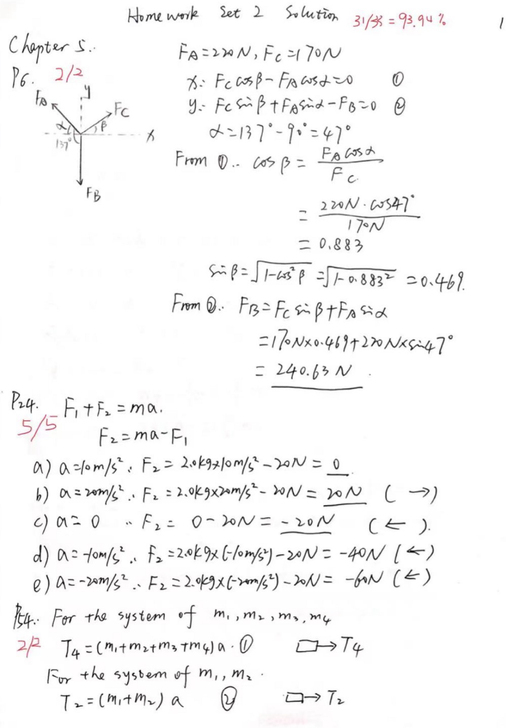 Homework Set 2 Solution 31/33 = 93.94% 1
Chapter 5.
P6. 2/2
FA = 220N, FC = 170N
x: Fc cosβ - FA cosα = 0 ①
y: Fc sinβ + FA sinα - FB = 0 ②
α = 137° - 90° = 47°
y
FA
FC
α
β
x
137°
FB
From ①. cosβ = FA cosα / Fc
= 220N · cos47° / 170N
= 0.883
sinβ = √1-cos²β = √1-0.883² = 0.469.
From ②. FB = Fc sinβ + FA sinα
= 170N × 0.469 + 220N × sin47°
= 240.63 N
P24. F₁ + F₂ = ma.
5/5
F₂ = ma - F₁
a) a = 10m/s². F₂ = 2.0kg × 10m/s² - 20N = 0
b) a = 20m/s². F₂ = 2.0kg × 20m/s² - 20N = 20N (→)
c) a = 0 . F₂ = 0 - 20N = -20N (←).
d) a = -10m/s². F₂ = 2.0kg × (-10m/s²) - 20N = -40N (←)
e) a = -20m/s². F₂ = 2.0kg × (-20m/s²) - 20N = -60N (←)
P54. For the system of m₁, m₂, m₃, m₄
2/2 T₄ = (m₁+m₂+m₃+m₄) a . ① → T₄
For the system of m₁, m₂.
T₂ = (m₁+m₂) a ② → T₂